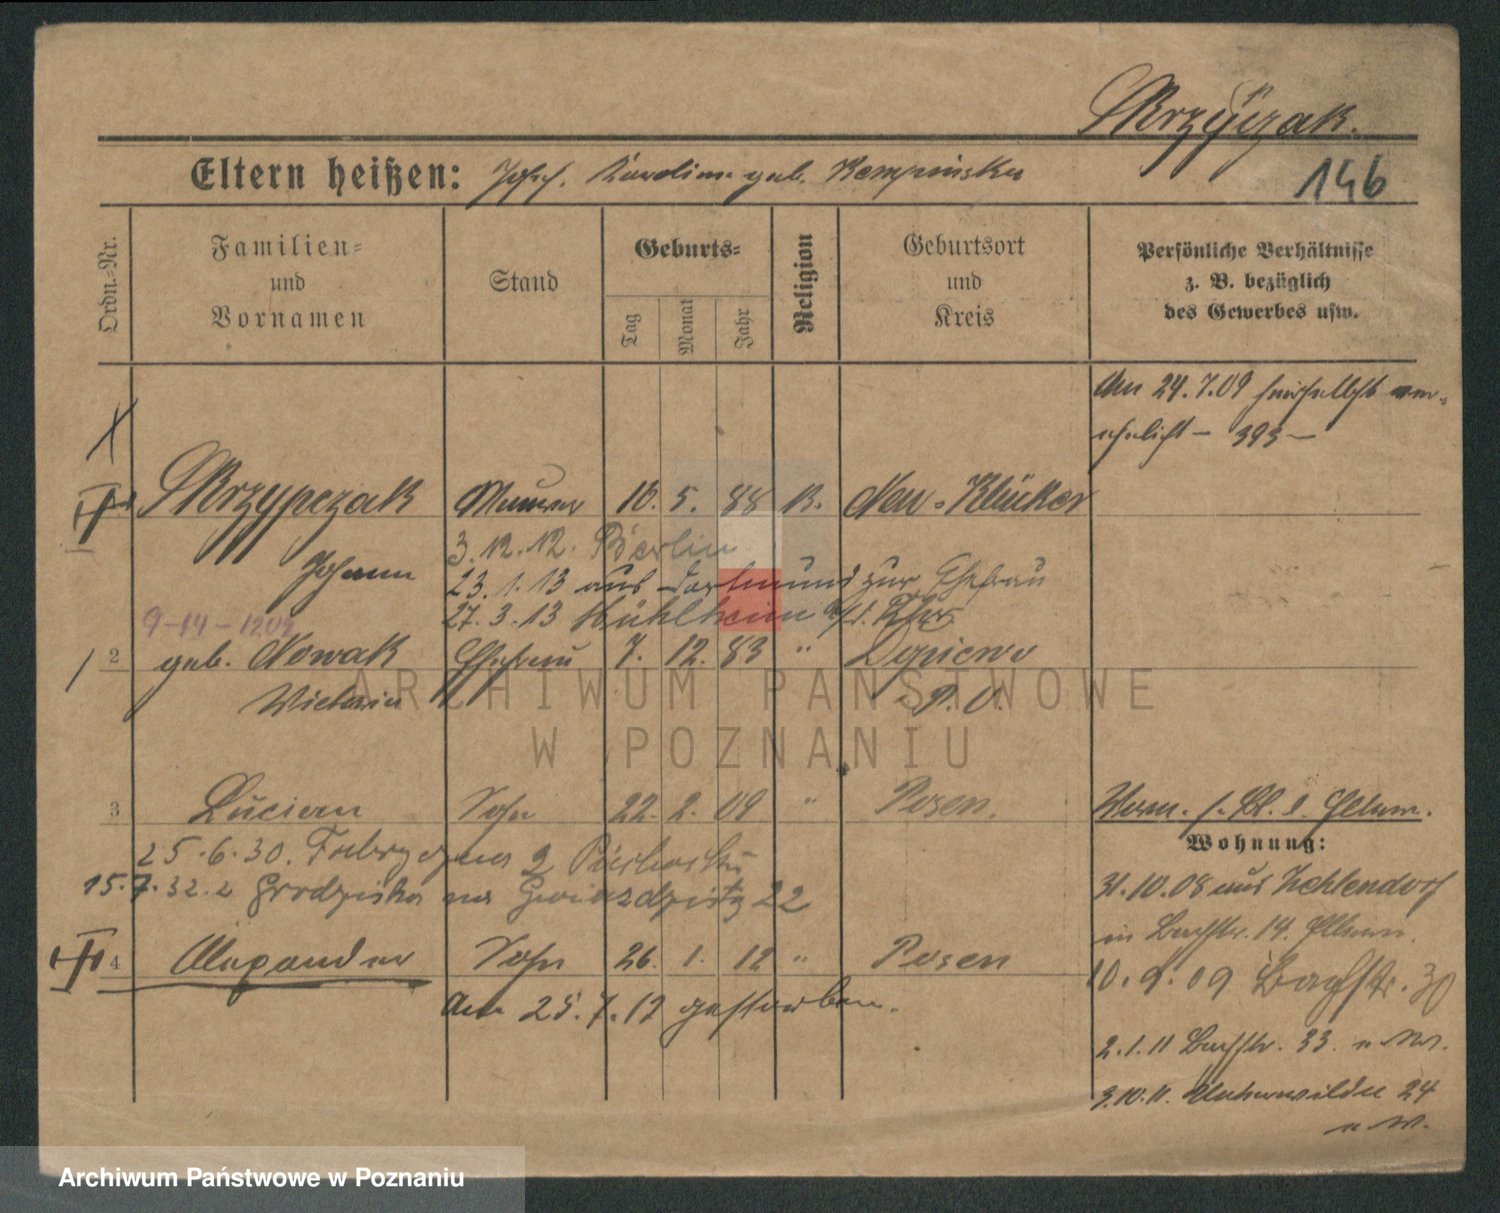 Skrzypczak.
Eltern heißen: Josef. Karoline geb. Kempinska
146
Ordn.-Nr.
Familien-
und
Vornamen
Stand
Geburts-
Tag
Monat
Jahr
Religion
Geburtsort
und
Kreis
Persönliche Verhältnisse
z. B. bezüglich
des Gewerbes usw.
Am 24.7.09 hierselbst ver-
ehelicht – 393 –
Skrzypczak Maurer 16. 5. 88 K. Neu-Klücker
3.12.12. Berlin
Johann
23.1.13 aus Dortmund zur Ehefrau
27.3.13 Mühlheim a/d. Ruhr
9-14-1209
2 geb. Nowak Ehefrau 7. 12. 83 " Dopiewo
Victoria P.O.
3 Lucian Sohn 22. 2. 09 " Posen.
25.6.30. 2
15.7.32. z Grodziska na 22
4 Alexander Sohn 26. 1. 12 " Posen
Am 25.7.12 gestorben.
Wohnung:
31.10.08 aus Zehlendorf
in Bachstr. 14.
10.9.09 Bachstr. 30
2.1.11 Bachstr. 33
3.10.11. Unterwilda 24
Archiwum Państwowe
w Poznaniu
Archiwum Państwowe w Poznaniu